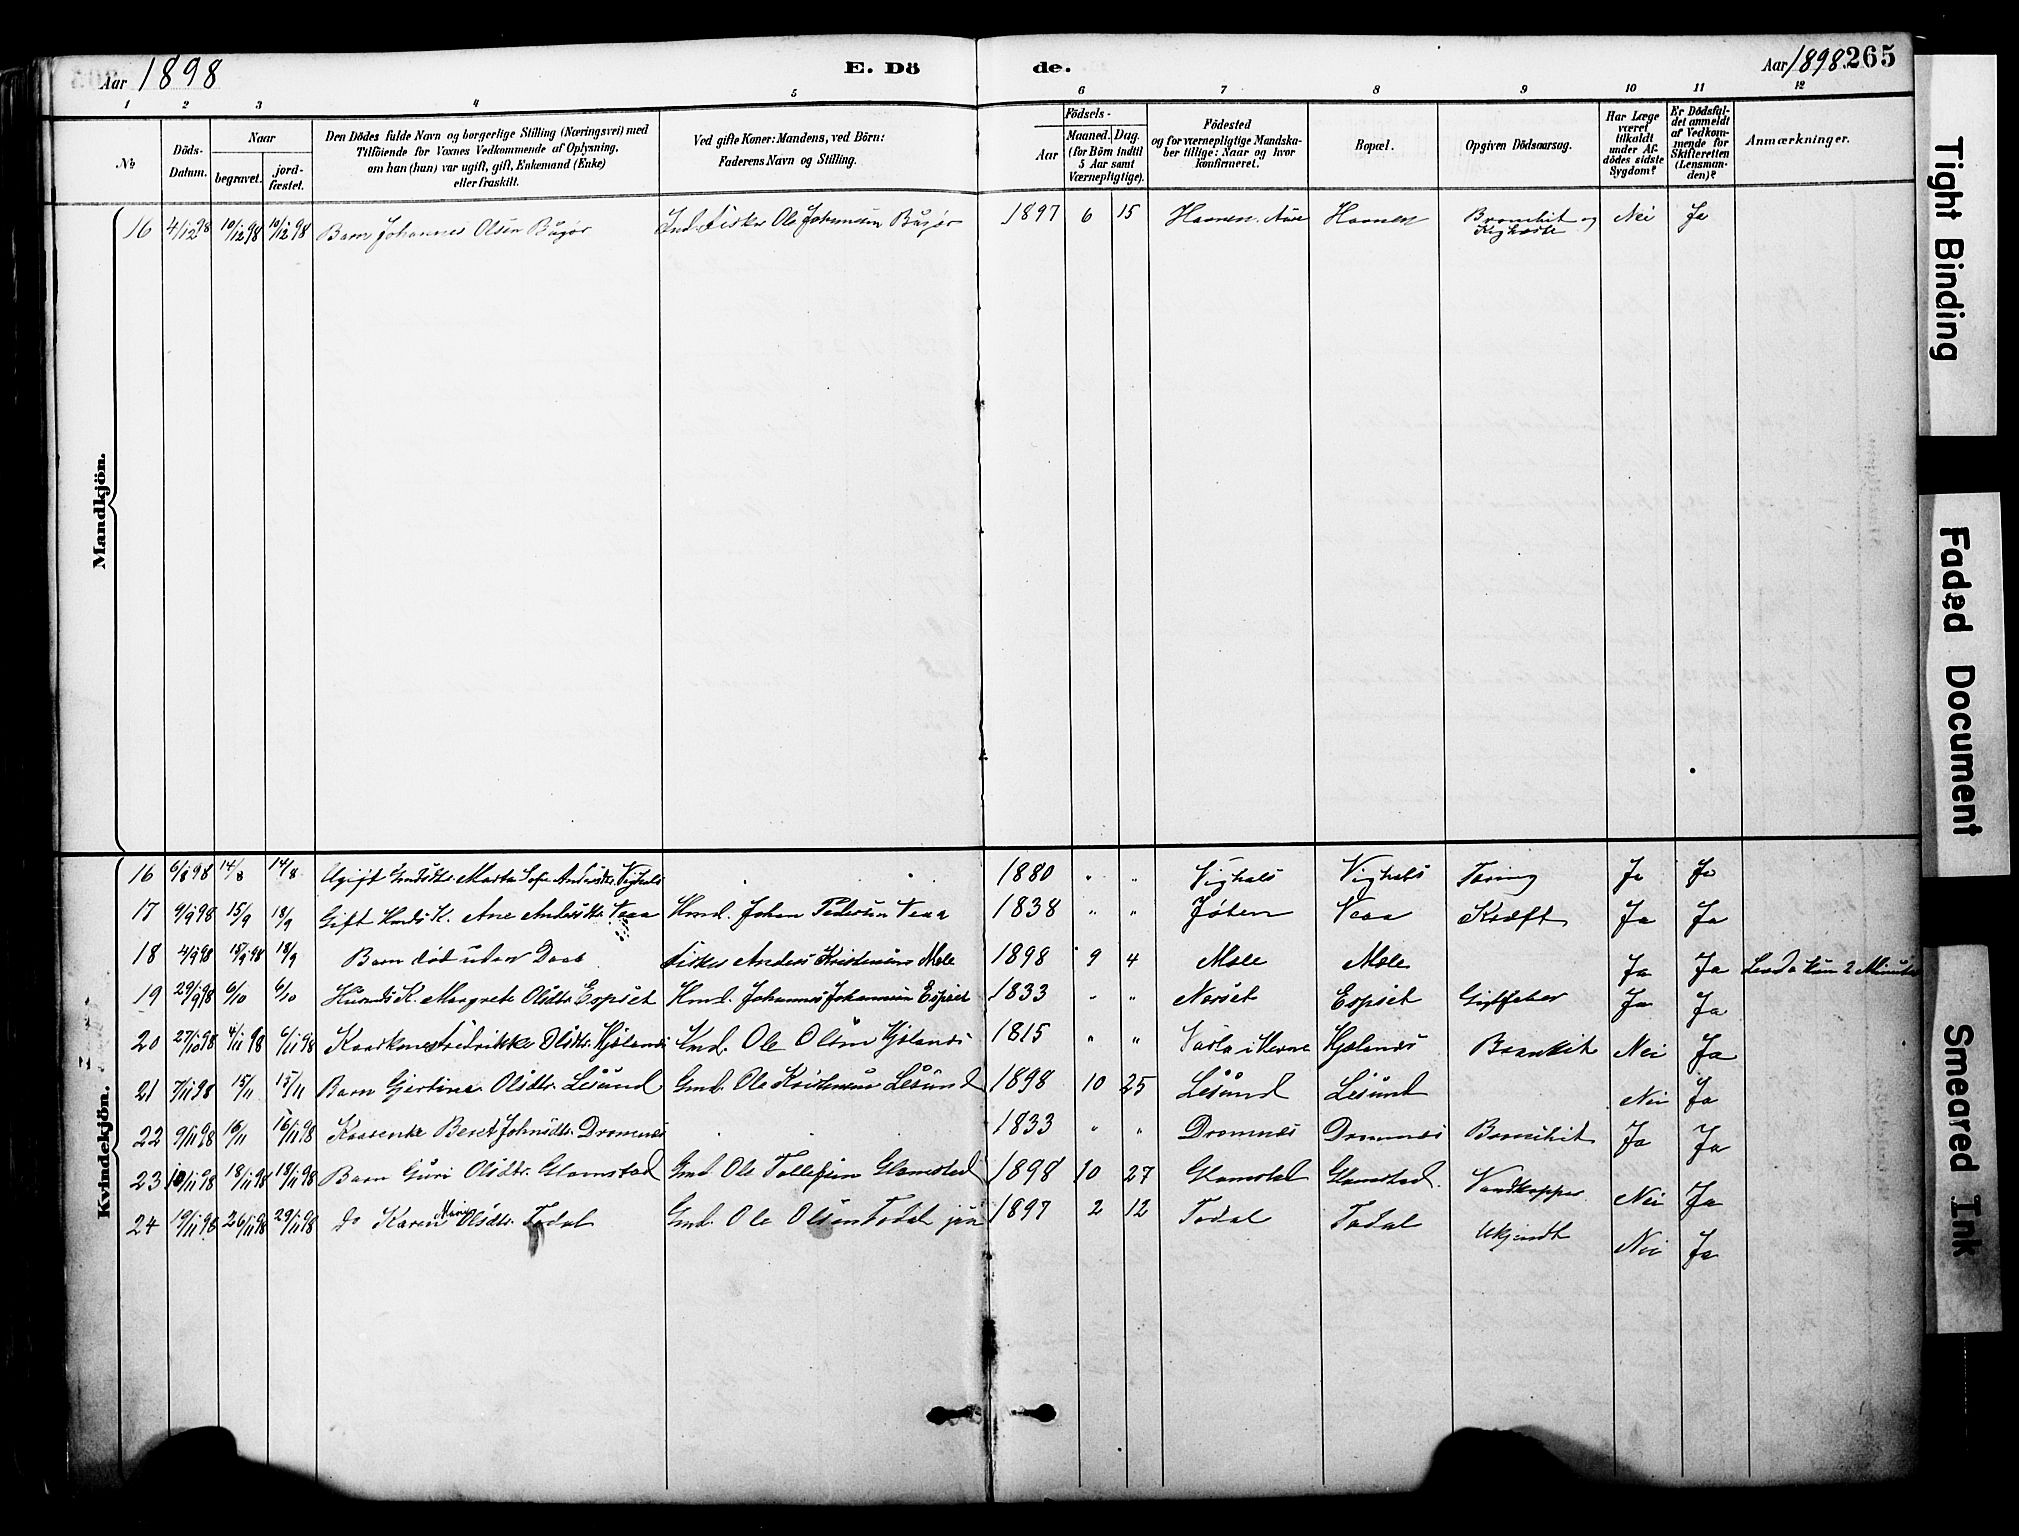 Aar 1898
E. Dö
de.
Aar 1898 265
1 2 3 4 5 6 7 8 9 10 11 12
No
Döds-Datum.
Naar
begravet.
jord-fæstet.
Den Dödes fulde Navn og borgerlige Stilling (Næringsvei) med
Tilföiende for Voxnes Vedkommende af Oplysning,
om han (hun) var ugift, gift, Enkemand (Enke)
eller fraskilt.
Ved gifte Koner: Mandens, ved Börn:
Faderens Navn og Stilling.
Födsels-
Aar
Maaned. Dag.
(for Börn indtil
5 Aar samt
Værnepligtige).
Födested
og for værnepligtige Mandska-
ber tillige: Naar og hvor
konfirmeret.
Bopæl.
Opgiven Dödsaarsag.
Har Læge
været
tilkaldt
under Af-
dödes sidste
Sygdom?
Er Dödsfal-
det anmeldt
af Vedkom-
mende for
Skifteretten
(Lensman-
den)?
Anmærkninger.
Mandkjön.
16 4/12 98 10/12 98 10/12 98 Barn Johannes Olsen Bugør Ind. Fisker Ole Johansen Bugør 1897 6 15 Havnen Aure Havnen Bronchit og Kighoste Nei Ja
Kvindekjön.
16 6/8 98 14/8 14/8 Ugift Marta Sofie Andersdtr. Vighals 1880 " " Vighals Vighals Tæring Ja Ja
17 9/9 98 15/9 18/9 Gift Kmds K. Ane Andersdtr. Veaa Kmd. Johan Pedersen Veaa 1838 " " Jøten Veaa Kræft Ja Ja
18 4/9 98 15/9 98 18/9 Barn død uden Daab Fisker Anders Kristensen Mele 1898 9 4 Mele Mele Ja Ja Levde kun 2 Minuter
19 29/9 98 6/10 6/10 Husmds K. Margrete Olsdtr. Espset Hmd. Johannes Johansen Espset 1833 " " Nerset Espset Gigtfeber Ja Ja
20 27/10 98 4/11 98 6/11 98 Fredrikke Olsdtr. Hjelnes Kmd. Ole Olsen Hjelnes 1815 " " i Hevne Hjelnes Bronkit Nei Ja
21 7/11 98 15/11 15/11 Barn Gjertine Olsdtr. Lesund Gmd. Ole Kristensen Lesund 1898 10 25 Lesund Lesund Nei Ja
22 9/11 98 16/11 16/11 98 Beret Johnsdtr. Dromnes 1833 " " Dromnes Dromnes Bronchit Ja Ja
23 10/11 98 18/11 98 18/11 98 Barn Guri Olsdtr. Glamstad Gmd. Ole Tollefsen Glamstad 1898 10 27 Glamstad Glamstad Vandkopper Nei Ja
24 19/11 98 26/11 98 29/11 98 do Karen Marie Olsdtr. Todal Gmd. Ole Olsen Todal jun 1897 2 12 Todal Todal Ukjendt Nei Ja
Tight Binding
Faded Document
Smeared Ink